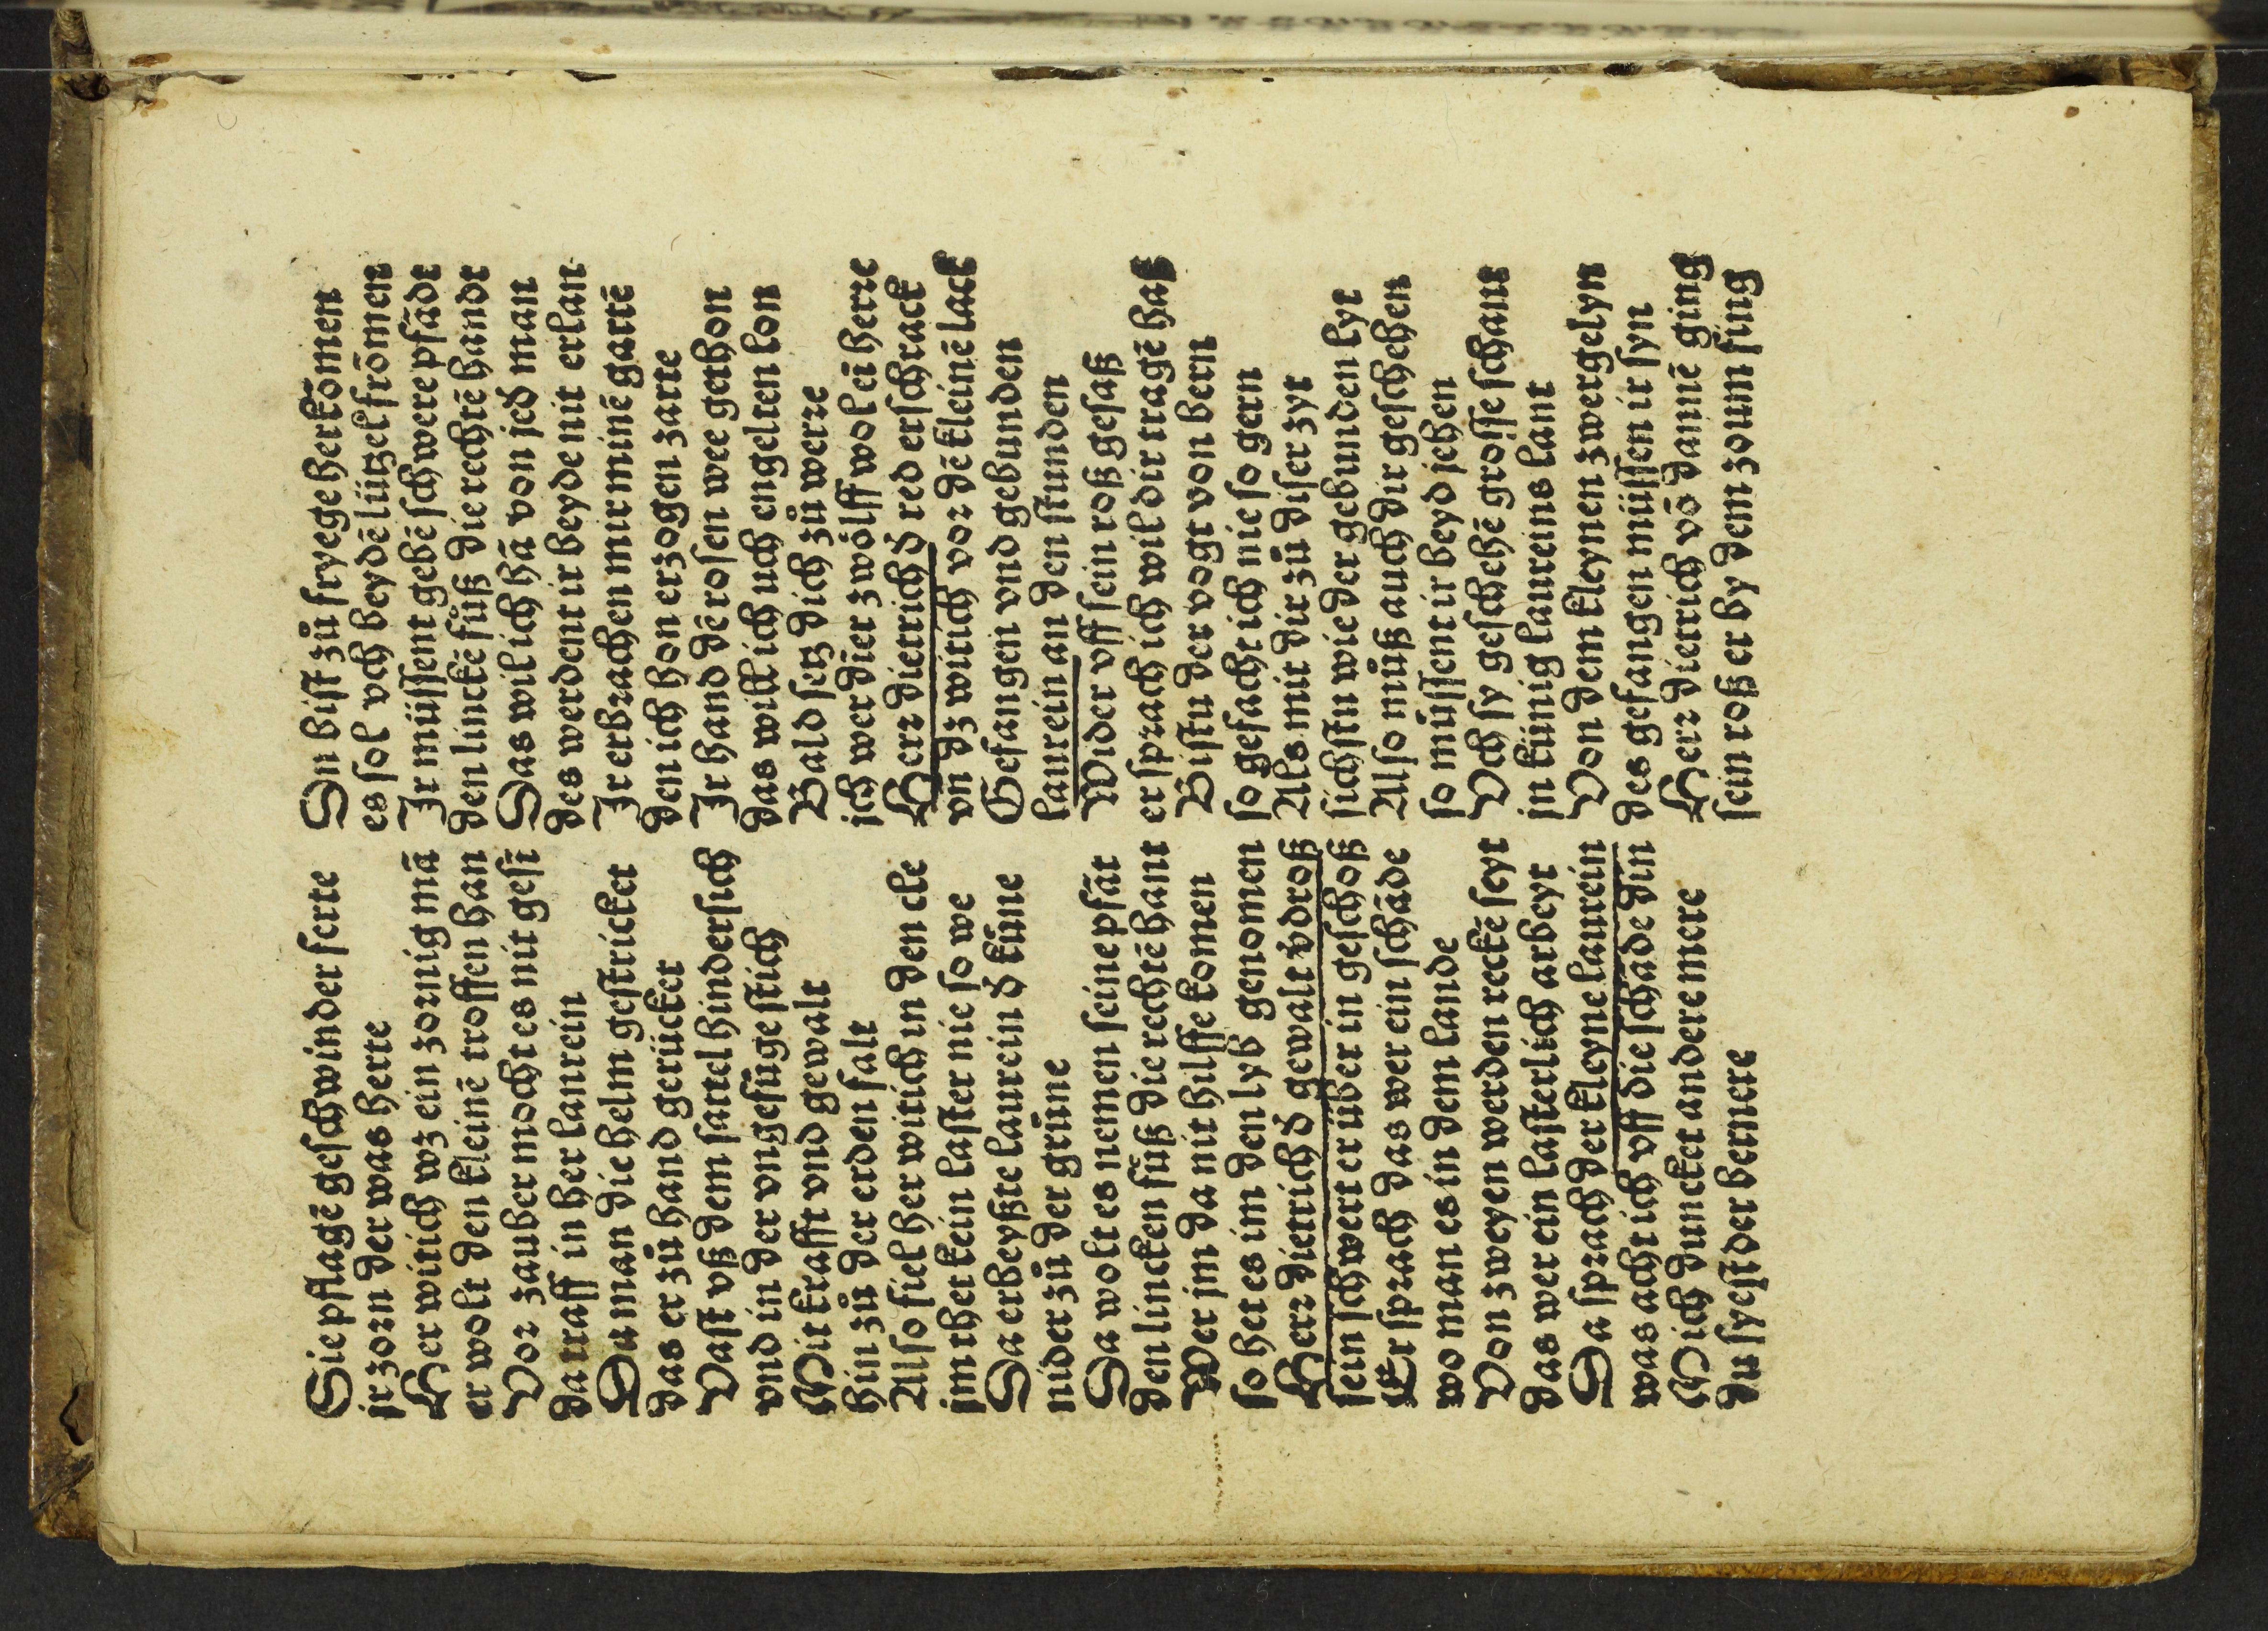 Sie pflagē geschwinder ferte
jr zorn der was herte
Her witich wz ein zornig mā
er wolt den kleinē troffen han
Vor zauber mocht es nit gesī
da traff in her laurein
Da man die helm gestricket
das er zů hand gerücket
Vast vß dem sattel hindersich
vnd in der vngefüge stich
Mit krafft vnd gewalt
hin zů der erden falt
Also fiel her witich in den cle
jm thet kein laster nie so we
Da erbeyßte laurein ð küne
nider zů der grüne
Da wolt es nemen seine pfāt
den lincken fůß die rechtē hant
Wer jm da nit hilffe komen
so het es im den lyb genomen
Herr dietrich ð gewalt v̄droß
sein schwert er über in geschoß
Er sprach das wer ein schāde
wo man es in dem lande
Von zweyen werden reckē seyt
das wer ein lasterlich arbeyt
Da sprach der kleyne laurein
was acht ich vff die schāde din
Mich duncket andere mere
du syest der bernere
Du bist zů fryege herkōmen
es sol vch beydē lützel frōmen
Jr müssent gebē schwere pfādt
den linckē fůß die rechtē handt
Das wil ich hā von jeð man
des werdent ir beyde nit erlan
Jr erbrachen mir minē gartē
den ich hon erzogen zarte
Jr hand dē rosen wee gethon
das will ich uch engelten lon
Bald setz dich zů werre
ich wer dier zwölff wol ei herre
Herr dietrich ð red erschrack
vn dz witich vor dē kleinē lack
Gefangen vnd gebunden
laurein an den stunden
Wider vff sein roß gesaß
er sprach ich wil dir tragē haß
Bistu der vogt von bern
so gefacht ich nie so gern
Als mit dir zů diser zyt
sichstu wie der gebunden lyt
Also můß auch dir geschehen
so müssent ir beyd jehen
Vch sy geschehē grosse schant
jn künig laureins lant
Von dem kleynen zwergelyn
des gefangen müssen ir syn
Herr dietrich vō dannē ging
sein roß er by dem zoum fing